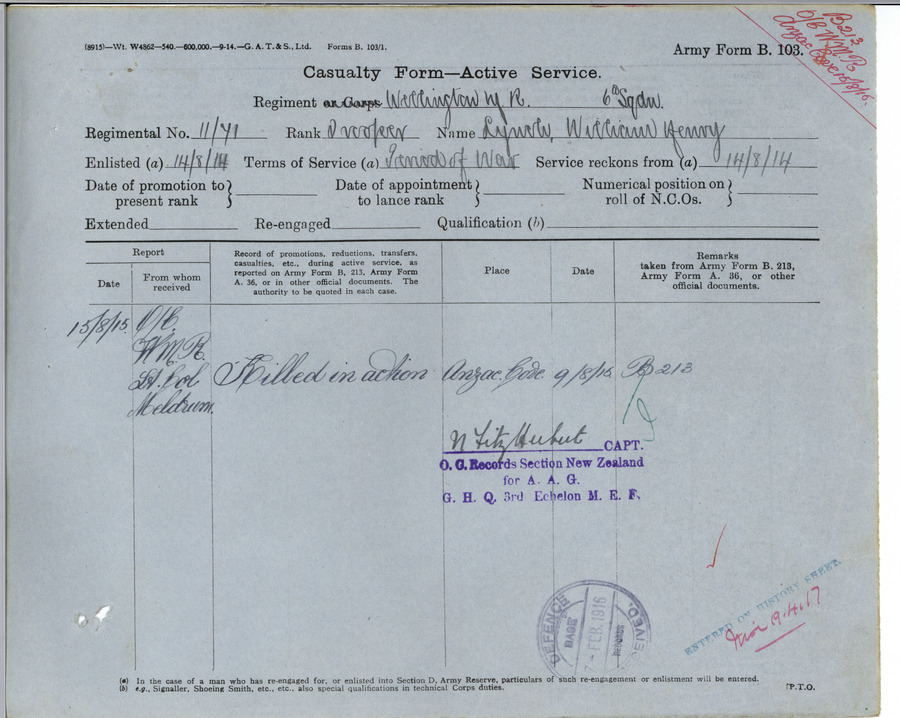 (8915)—Wt. W4862—540.—600,000.—9-14.—G. A. T. & S., Ltd. Forms B. 103/1.
Army Form B. 103.
B 213
O/C W.M.R.
Anzac Cove 15/8/15.
Casualty Form—Active Service.
Regiment or Corps Wellington M. R. 6th Sqdn.
Regimental No. 11/41 Rank Trooper Name Lynch, William Henry
Enlisted (a) 14/8/14 Terms of Service (a) Period of War Service reckons from (a) 14/8/14
Date of promotion to present rank } Date of appointment to lance rank } Numerical position on roll of N.C.Os. }
Extended Re-engaged Qualification (b)
Report
Date
From whom received
Record of promotions, reductions, transfers, casualties, etc., during active service, as reported on Army Form B. 213, Army Form A. 36, or in other official documents. The authority to be quoted in each case.
Place
Date
Remarks
taken from Army Form B. 213, Army Form A. 36, or other official documents.
15/8/15 O/C.
W.M.R.
Lt. Col
Meldrum.
Killed in action Anzac. Cove. 9/8/15. B 213
N Fitz Herbert CAPT.
O. C. Records Section New Zealand
for A. A. G.
G. H. Q. 3rd Echelon M. E. F.
DEFENCE
BASE
FEB. 1916
RECORDS
ENTERED ON HISTORY SHEET.
19.4.17
(a) In the case of a man who has re-engaged for, or enlisted into Section D, Army Reserve, particulars of such re-engagement or enlistment will be entered.
(b) e.g., Signaller, Shoeing Smith, etc., etc., also special qualifications in technical Corps duties.
[P.T.O.